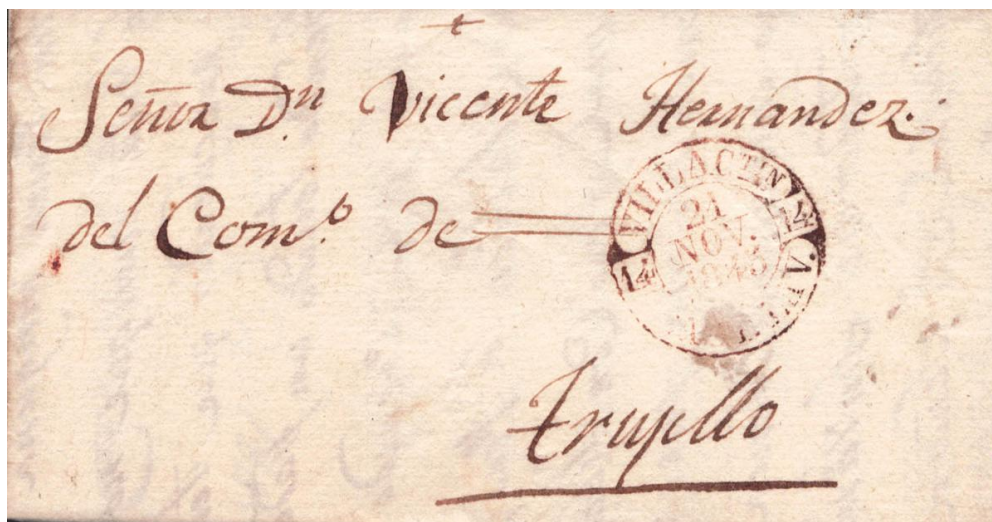 Señor Dn. Vicente Hernandez.
del Como. de
VILLACTIN
14
21
NOV.
1845
Trujillo